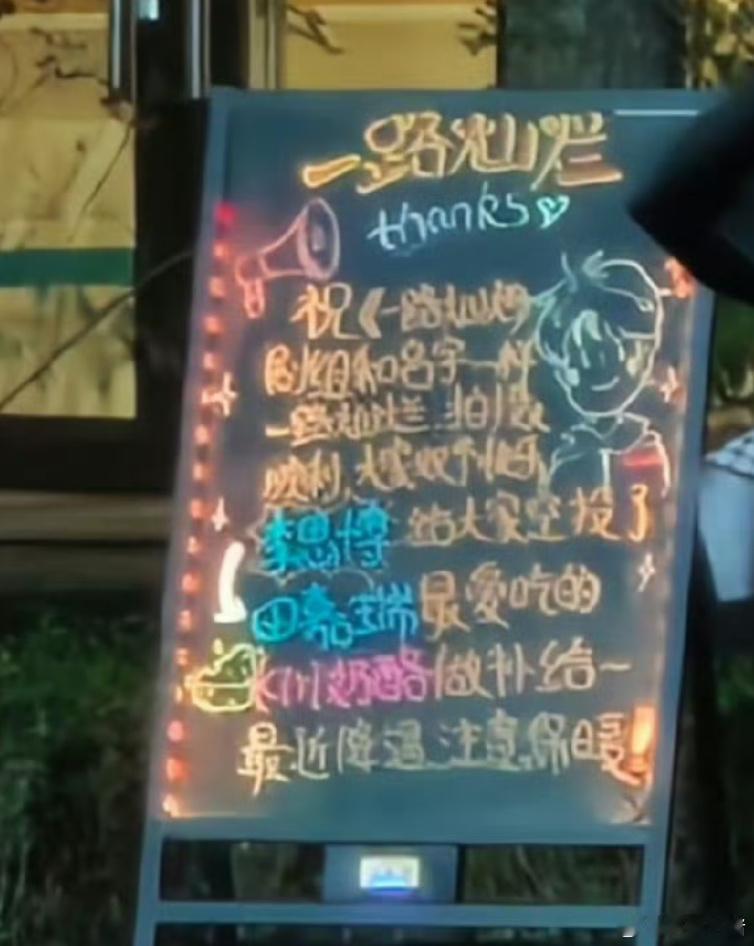 一路灿烂
thanks
祝《一路灿烂
剧组和名字一样
一路灿烂、拍摄
顺利、大家收工
李思博 给大家空投了
田嘉瑞最爱吃的
奶酪做补给~
最近降温、注意保暖